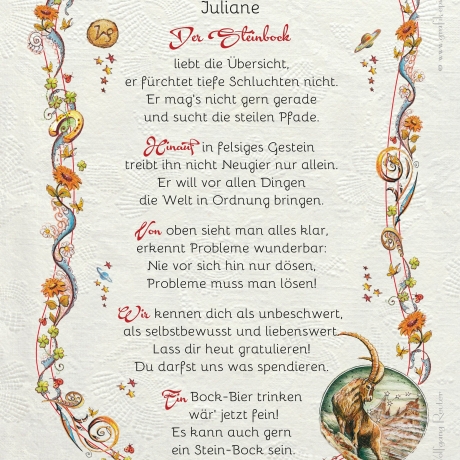 Juliane
Der Steinbock
liebt die Übersicht,
er fürchtet tiefe Schluchten nicht.
Er mag's nicht gern gerade
und sucht die steilen Pfade.
Hinauf in felsiges Gestein
treibt ihn nicht Neugier nur allein.
Er will vor allen Dingen
die Welt in Ordnung bringen.
Von oben sieht man alles klar,
erkennt Probleme wunderbar:
Nie vor sich hin nur dösen,
Probleme muss man lösen!
Wir kennen dich als unbeschwert,
als selbstbewusst und liebenswert.
Lass dir heut gratulieren!
Du darfst uns was spendieren.
Ein Bock-Bier trinken
wär' jetzt fein!
Es kann auch gern
ein Stein-Bock sein.